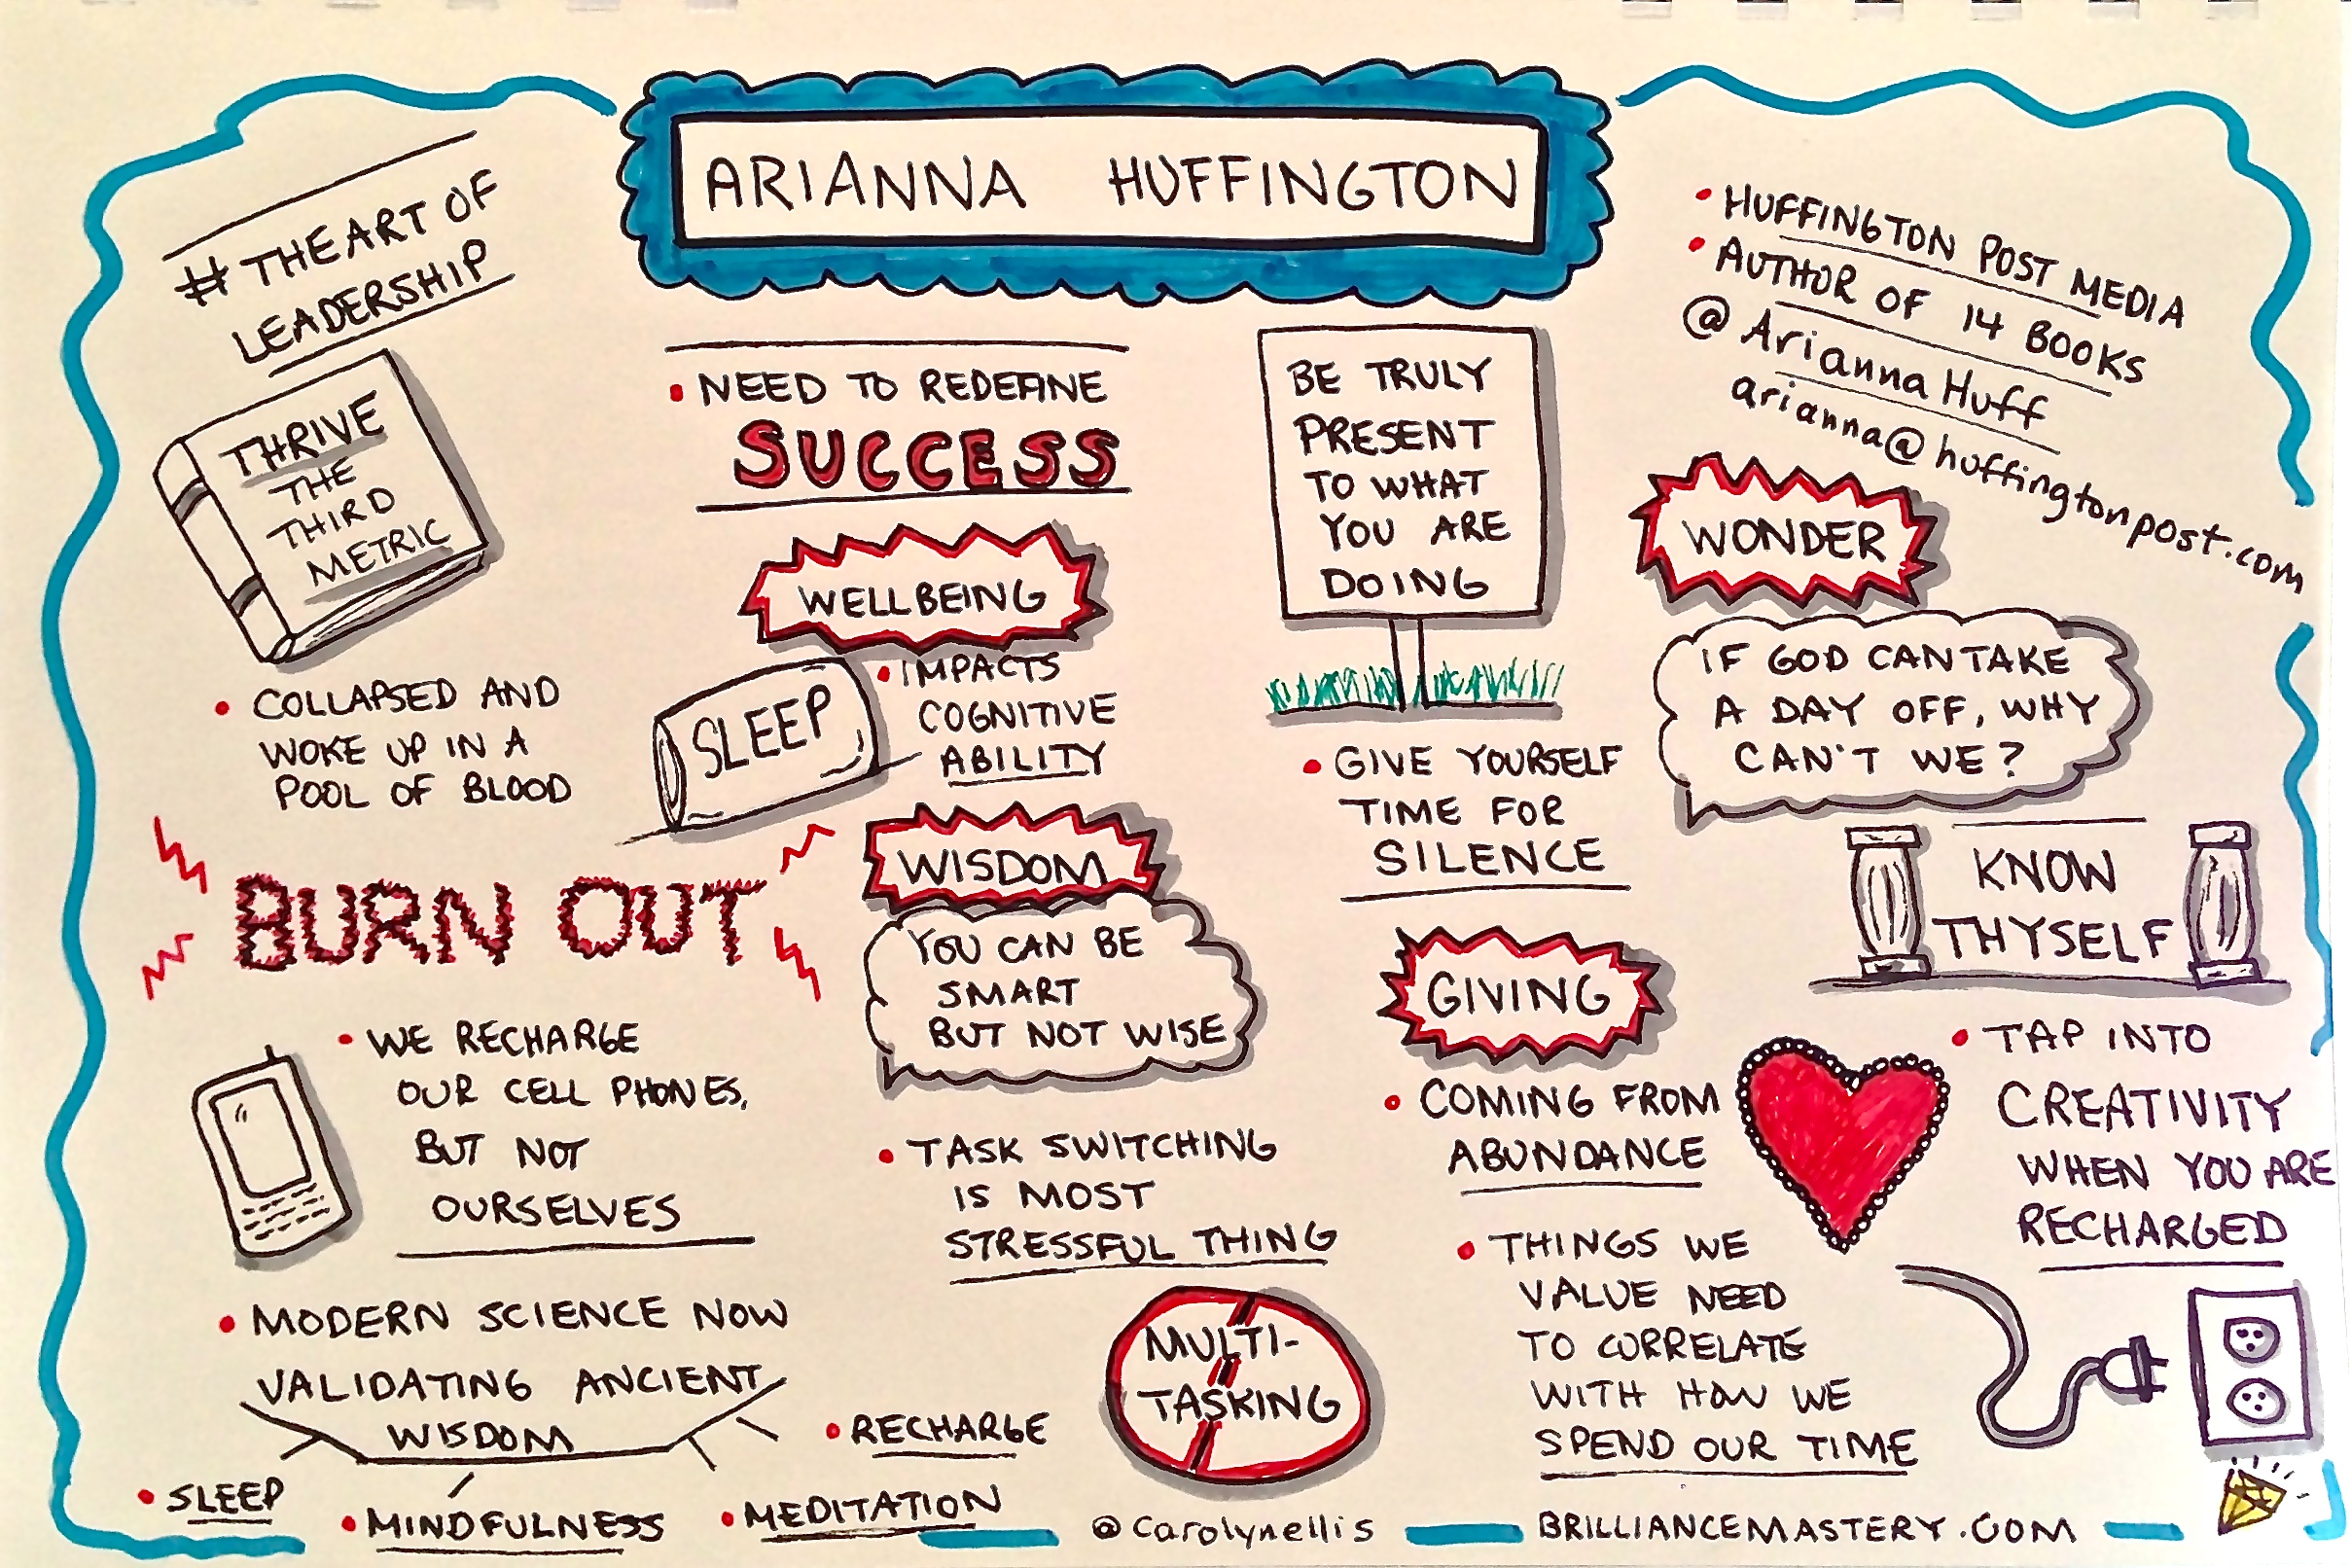 ARIANNA HUFFINGTON
# THEART OF
LEADERSHIP
THRIVE
THE
THIRD
METRIC
• COLLAPSED AND
WOKE UP IN A
POOL OF BLOOD
BURN OUT
• WE RECHARGE
OUR CELL PHONES,
BUT NOT
OURSELVES
• MODERN SCIENCE NOW
VALIDATING ANCIENT
WISDOM
• SLEEP
• MINDFULNESS
• MEDITATION
• RECHARGE
• NEED TO REDEFINE
SUCCESS
WELLBEING
SLEEP
• IMPACTS
COGNITIVE
ABILITY
WISDOM
YOU CAN BE
SMART
BUT NOT WISE
• TASK SWITCHING
IS MOST
STRESSFUL THING
MULTI-
TASKING
BE TRULY
PRESENT
TO WHAT
YOU ARE
DOING
• GIVE YOURSELF
TIME FOR
SILENCE
GIVING
• COMING FROM
ABUNDANCE
• THINGS WE
VALUE NEED
TO CORRELATE
WITH HOW WE
SPEND OUR TIME
• HUFFINGTON POST MEDIA
• AUTHOR OF 14 BOOKS
@ AriannaHuff
arianna@huffingtonpost.com
WONDER
IF GOD CAN TAKE
A DAY OFF, WHY
CAN'T WE?
KNOW
THYSELF
• TAP INTO
CREATIVITY
WHEN YOU ARE
RECHARGED
@carolynellis
BRILLIANCEMASTERY.COM